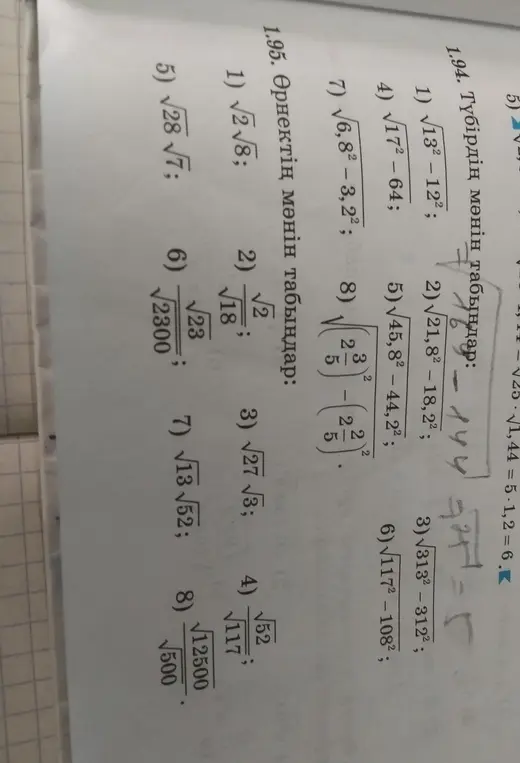 5)
√25 · √1,44 = 5 · 1,2 = 6.
1.94. Түбірдің мәнін табыңдар:
= √169 − 144 = √25 = 5
1) √(13² − 12²); 2) √(21,8² − 18,2²); 3) √(313² − 312²);
4) √(17² − 64); 5) √(45,8² − 44,2²); 6) √(117² − 108²);
7) √(6,8² − 3,2²); 8) √((2 3/5)² − (2 2/5)²).
1.95. Өрнектің мәнін табыңдар:
1) √2 √8; 2) √2/√18; 3) √27 √3; 4) √52/√117;
5) √28 √7; 6) √23/√2300; 7) √13 √52; 8) √12500/√500.